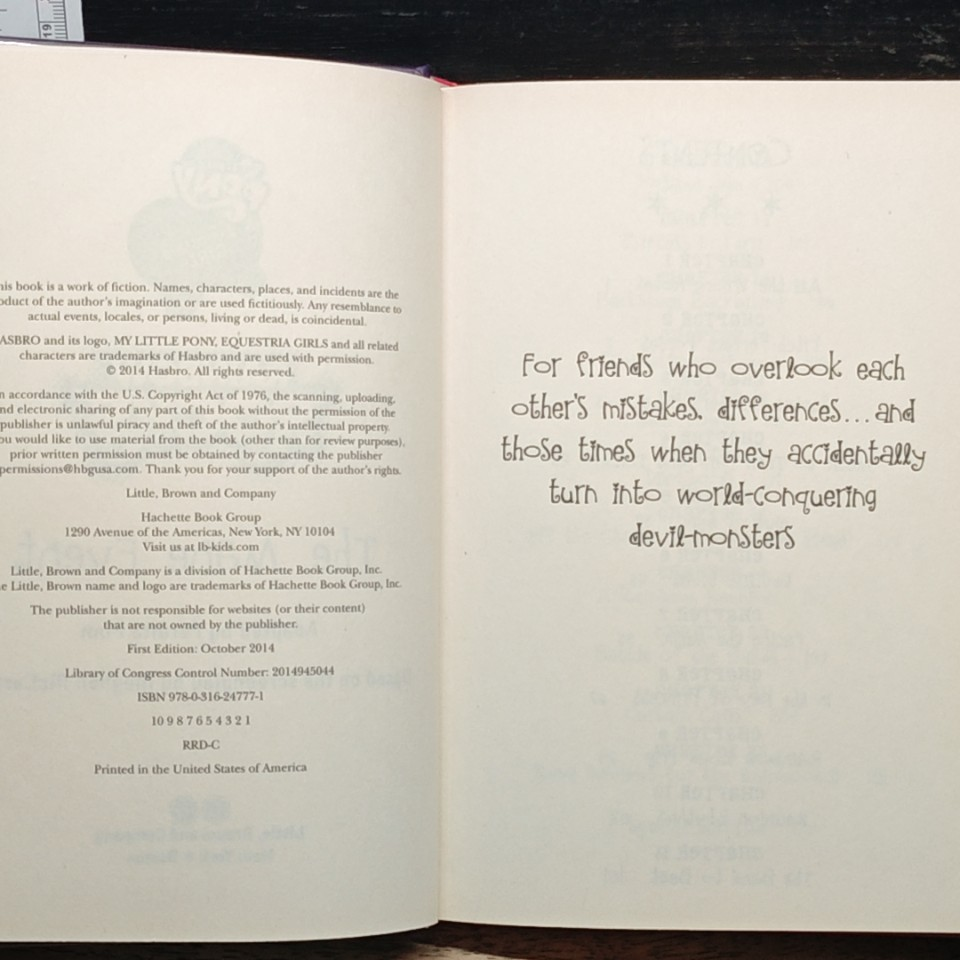 19
his book is a work of fiction. Names, characters, places, and incidents are the
oduct of the author's imagination or are used fictitiously. Any resemblance to
actual events, locales, or persons, living or dead, is coincidental.
ASBRO and its logo, MY LITTLE PONY, EQUESTRIA GIRLS and all related
characters are trademarks of Hasbro and are used with permission.
© 2014 Hasbro. All rights reserved.
n accordance with the U.S. Copyright Act of 1976, the scanning, uploading,
nd electronic sharing of any part of this book without the permission of the
publisher is unlawful piracy and theft of the author's intellectual property.
ou would like to use material from the book (other than for review purposes),
prior written permission must be obtained by contacting the publisher
permissions@hbgusa.com. Thank you for your support of the author's rights.
Little, Brown and Company
Hachette Book Group
1290 Avenue of the Americas, New York, NY 10104
Visit us at lb-kids.com
Little, Brown and Company is a division of Hachette Book Group, Inc.
e Little, Brown name and logo are trademarks of Hachette Book Group, Inc.
The publisher is not responsible for websites (or their content)
that are not owned by the publisher.
First Edition: October 2014
Library of Congress Control Number: 2014945044
ISBN 978-0-316-24777-1
10 9 8 7 6 5 4 3 2 1
RRD-C
Printed in the United States of America
For friends who overlook each
other's mistakes, differences...and
those times when they accidentally
turn into world-conquering
devil-monsters